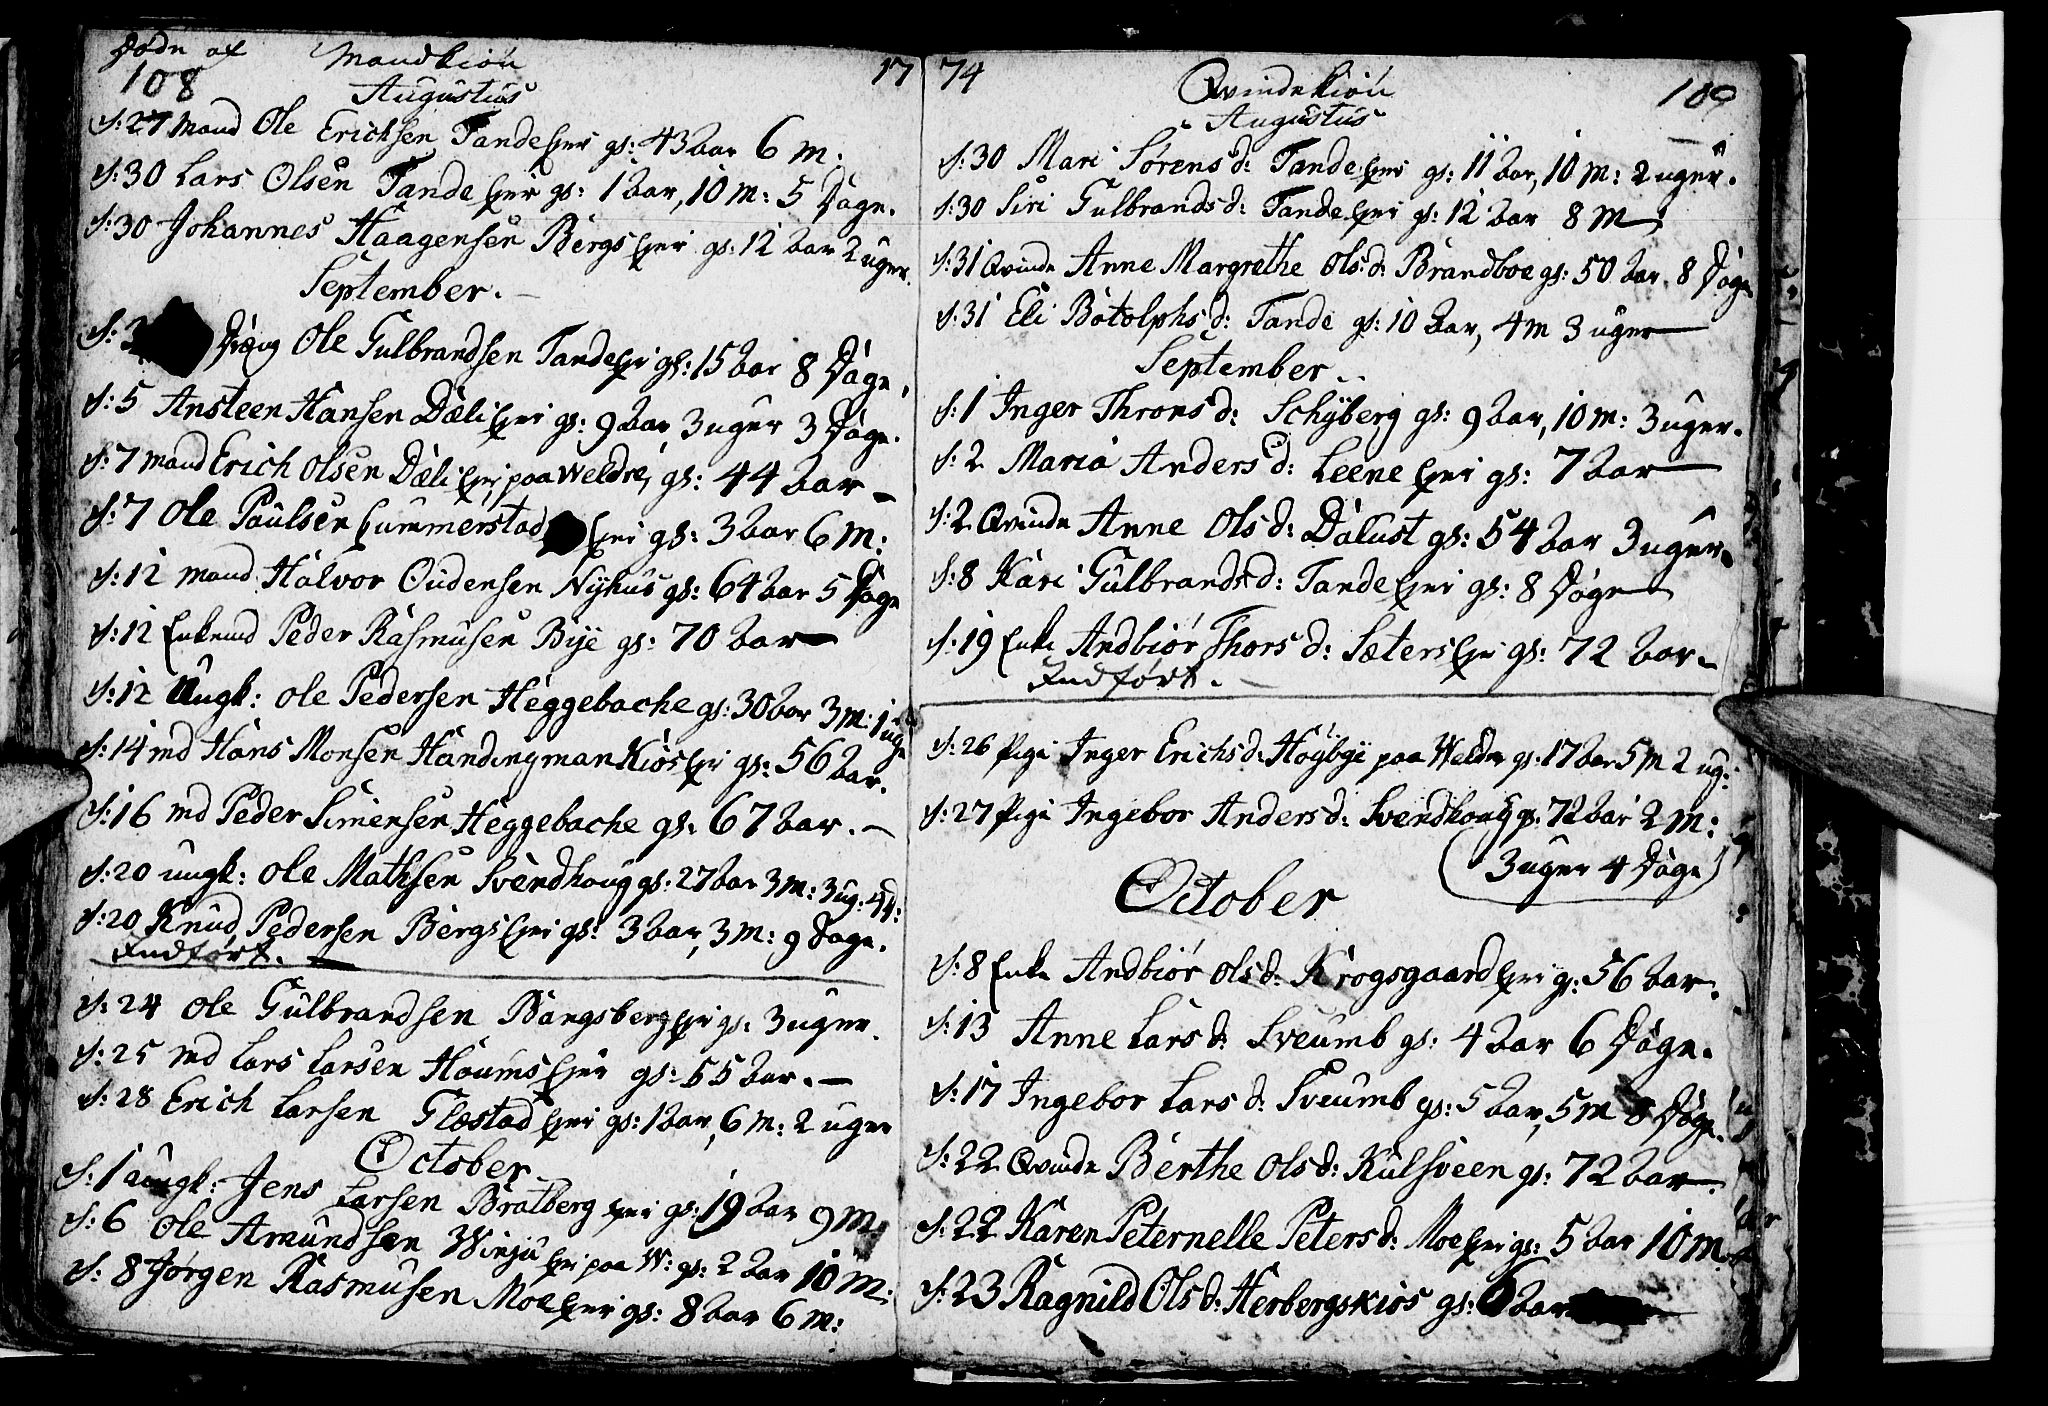 Døde af Mandkiön 17
108
Augustus
S: 27 Mand Ole Erichsen Tande Eyer gs: 43 aar 6 M:
S: 30 Lars Olsen Tande Eyer gs: 1 aar, 10 M: 5 Dage.
S: 30 Johannes Haagensen Bergs Eyer gs: 12 aar 2 uger.
September.
S: 3 Dreng Ole Gulbrandsen Tande Eyer gs: 15 aar 8 Dage.
S: 5 Ansteen Hansen Dæli Eyer gs: 9 aar, 3 uger 3 Dage.
S: 7 Mand Erich Olsen Dæli Eyer paa Weldre, gs: 44 aar
S: 7 Ole Paulsen Lummerstad Eyer gs: 3 aar 6 M:
S: 12 Mand Halvor Oudensen Nyhus gs: 64 aar 5 Dage
S: 12 Enkemd Peder Rasmusen Bye gs: 70 aar
S: 12 Ungk: Ole Pedersen Heggebache gs: 30 aar 3 M: 1 uge
S: 14 md Hans Monsen Handingman Kiös Eyer gs: 56 aar.
S: 16 md Peder Simensen Heggebache gs: 67 aar.
S: 20 ungk: Ole Mathsen Svendhoug gs: 27 aar 3 M: 3 ug: 4 d:
S: 20 Knud Pedersen Bergs Eyer gs: 3 aar, 3 M: 9 Dage.
Indført.
S: 24 Ole Gulbrandsen Bangsberg Eyer gs: 3 uger.
S: 25 md Lars Larsen Houms Eyer gs: 55 aar.
S: 28 Erich Larsen Glæstad Eyer gs: 1 aar, 6 M: 2 uger
October
S: 1 ungk: Jens Larsen Bratberg Eyer gs: 19 aar 9 M:
S: 6 Ole Amundsen Winju Eyer paa W: gs: 2 aar 10 M:
S: 8 Jørgen Rasmusen Moe Eyer gs: 8 aar 6 M:
74 Qvindekiön 109
Augustus
S: 30 Mari Sørens d: Tande Eyer gs: 11 aar, 10 M: 2 uger.
S: 30 Siri Gulbrands d: Tande Eyer gs: 12 aar 8 M
S: 31 Qvinde Anne Margrethe Ols d: Brandboe gs: 50 aar. 8 Dage
S: 31 Eli Botolphs d: Tande gs: 10 aar, 4 m 3 uger
September
S: 1 Inger Throns d: Schyberg gs: 9 aar, 10 M: 3 uger.
S: 2 Maria Anders d: Leene Eyer gs: 7 aar
S: 2 Qvinde Anne Ols d: Dalust gs: 54 aar 3 uger.
S: 8 Kari Gulbrands d: Tande Eyer gs: 8 Dage
S: 19 Enke Andbiör Thors d: Sæters Eyer gs: 72 aar.
Indført.
S: 26 Pige Inger Erichs d: Höybye paa Weldre gs: 17 aar 5 M 2 ug:
S: 27 Pige Ingebor Anders d: Svendhoug gs: 72 aar 2 M:
(3 uger 4 Dage)
October
S: 8 Enke Andbiör Ols d: Krogsgaard Eyer gs: 56 aar.
S: 13 Anne Lars d: Sveumb gs: 4 aar 6 Dage.
S: 17 Ingebor Lars d: Sveumb gs: 5 aar, 5 M 8 Dage.
S: 22 Qvinde Berthe Ols d: Kulsveen gs: 72 aar
S: 22 Karen Peternelle Peters d: Moe Eyer gs: 5 aar 10 M
S: 23 Ragnild Ols d: Herbergskiös gs: 6 aar